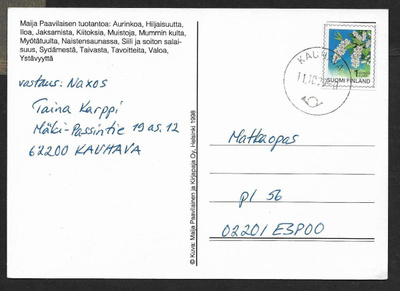 Maija Paavilaisen tuotantoa: Aurinkoa, Hiljaisuutta,
Iloa, Jaksamista, Kiitoksia, Muistoja, Mummin kulta,
Myötätuulta, Naistensaunassa, Siili ja soiton salai-
suus, Sydämestä, Taivasta, Tavoitteita, Valoa,
Ystävyyttä
vastaus: Naxos
Taina Karppi
Mäki-Passintie 19 as. 12
62200 KAUHAVA
© Kuva: Maija Paavilainen ja Kirjapaja Oy, Helsinki 1998
KAUHAVA
1
SUOMI FINLAND
Matkaopas
pl 56
02201 ESPOO